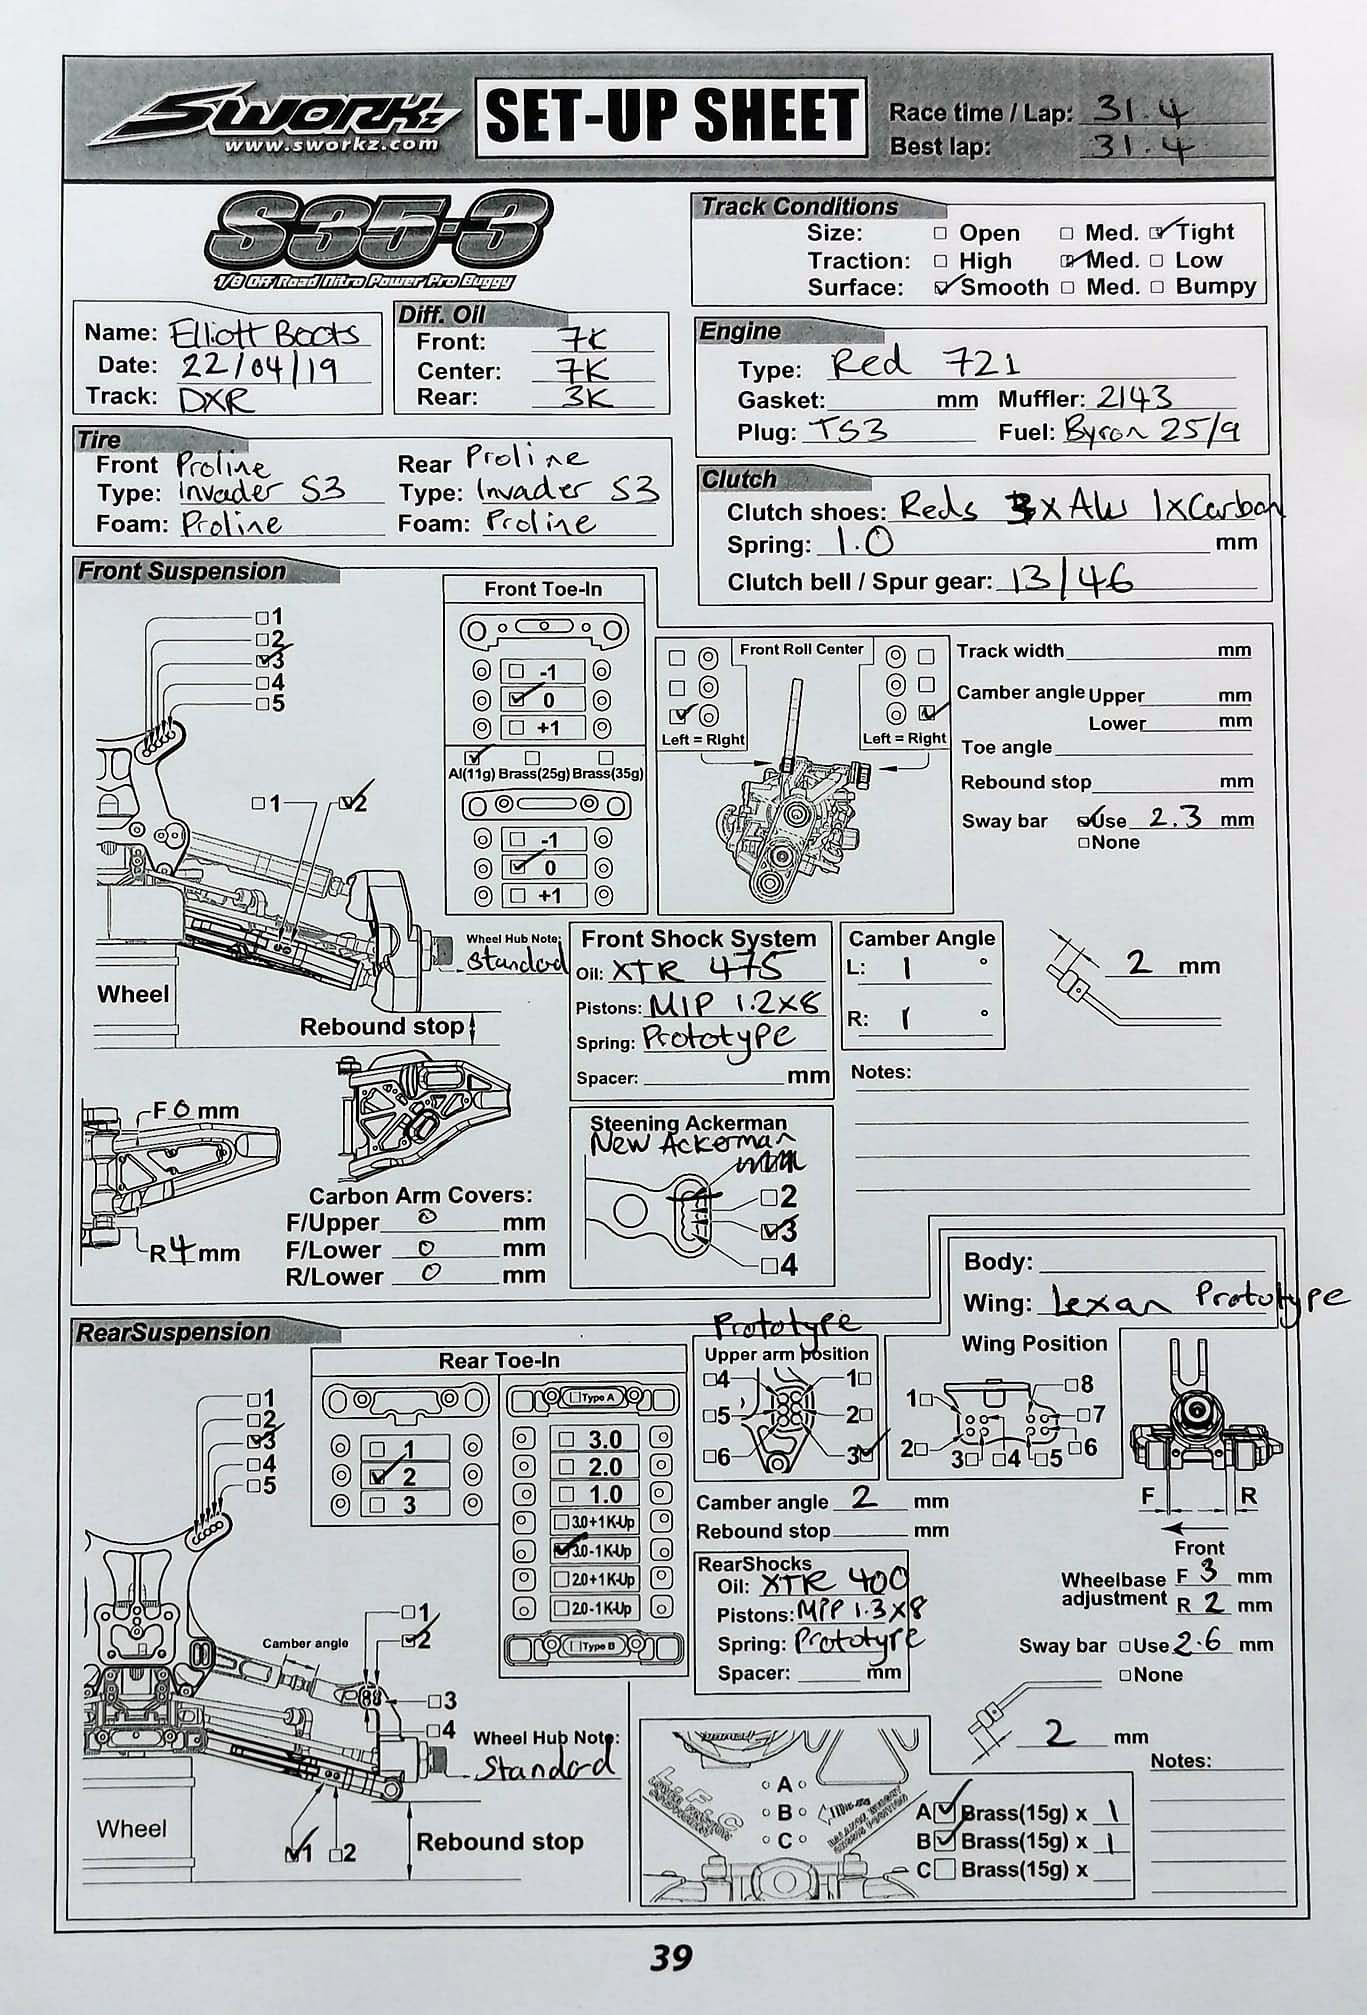 SWORKz
www.sworkz.com
SET-UP SHEET
Race time / Lap: 31.4
Best lap: 31.4
S35-3
1/8 Off Road Nitro Power Pro Buggy
Track Conditions
Size: Open Med. Tight
Traction: High Med. Low
Surface: Smooth Med. Bumpy
Name: Elliott Boots
Date: 22/04/19
Track: DXR
Diff. Oil
Front: 7K
Center: 7K
Rear: 3K
Engine
Type: Red 721
Gasket: mm Muffler: 2143
Plug: TS3 Fuel: Byron 25/9
Tire
Front Proline
Type: Invader S3
Foam: Proline
Rear Proline
Type: Invader S3
Foam: Proline
Clutch
Clutch shoes: Reds 3x Alu 1xCarbon
Spring: 1.0 mm
Clutch bell / Spur gear: 13/46
Front Suspension
1
2
3
4
5
1 2
Front Toe-In
-1
0
+1
Al(11g) Brass(25g) Brass(35g)
-1
0
+1
Front Roll Center
Left = Right
Left = Right
Track width mm
Camber angle Upper mm
Lower mm
Toe angle
Rebound stop mm
Sway bar Use 2.3 mm
None
Wheel Hub Note:
Standard
Wheel
Rebound stop
Front Shock System
Oil: XTR 475
Pistons: MIP 1.2x8
Spring: Prototype
Spacer: mm
Camber Angle
L: 1 °
R: 1 °
2 mm
Notes:
F 0 mm
R 4 mm
Carbon Arm Covers:
F/Upper 0 mm
F/Lower 0 mm
R/Lower 0 mm
Steening Ackerman
New Ackerman
2
3
4
Body:
Wing: Lexan Prototype
RearSuspension
1
2
3
4
5
Rear Toe-In
1
2
3
Type A
3.0
2.0
1.0
3.0+1 K-Up
3.0-1 K-Up
2.0+1 K-Up
2.0-1 K-Up
Type B
Prototype
Upper arm position
4 1
5 2
6 3
Wing Position
1 8
7
2 3 4 5 6
F R
Front
Camber angle 2 mm
Rebound stop mm
RearShocks
Oil: XTR 400
Pistons: MIP 1.3x8
Spring: Prototype
Spacer: mm
Wheelbase adjustment F 3 mm
R 2 mm
Sway bar Use 2.6 mm
None
2 mm
Camber angle
1
2
3
4
Wheel Hub Note:
Standard
Wheel
1 2
Rebound stop
A
B
C
A Brass(15g) x 1
B Brass(15g) x 1
C Brass(15g) x
Notes:
39